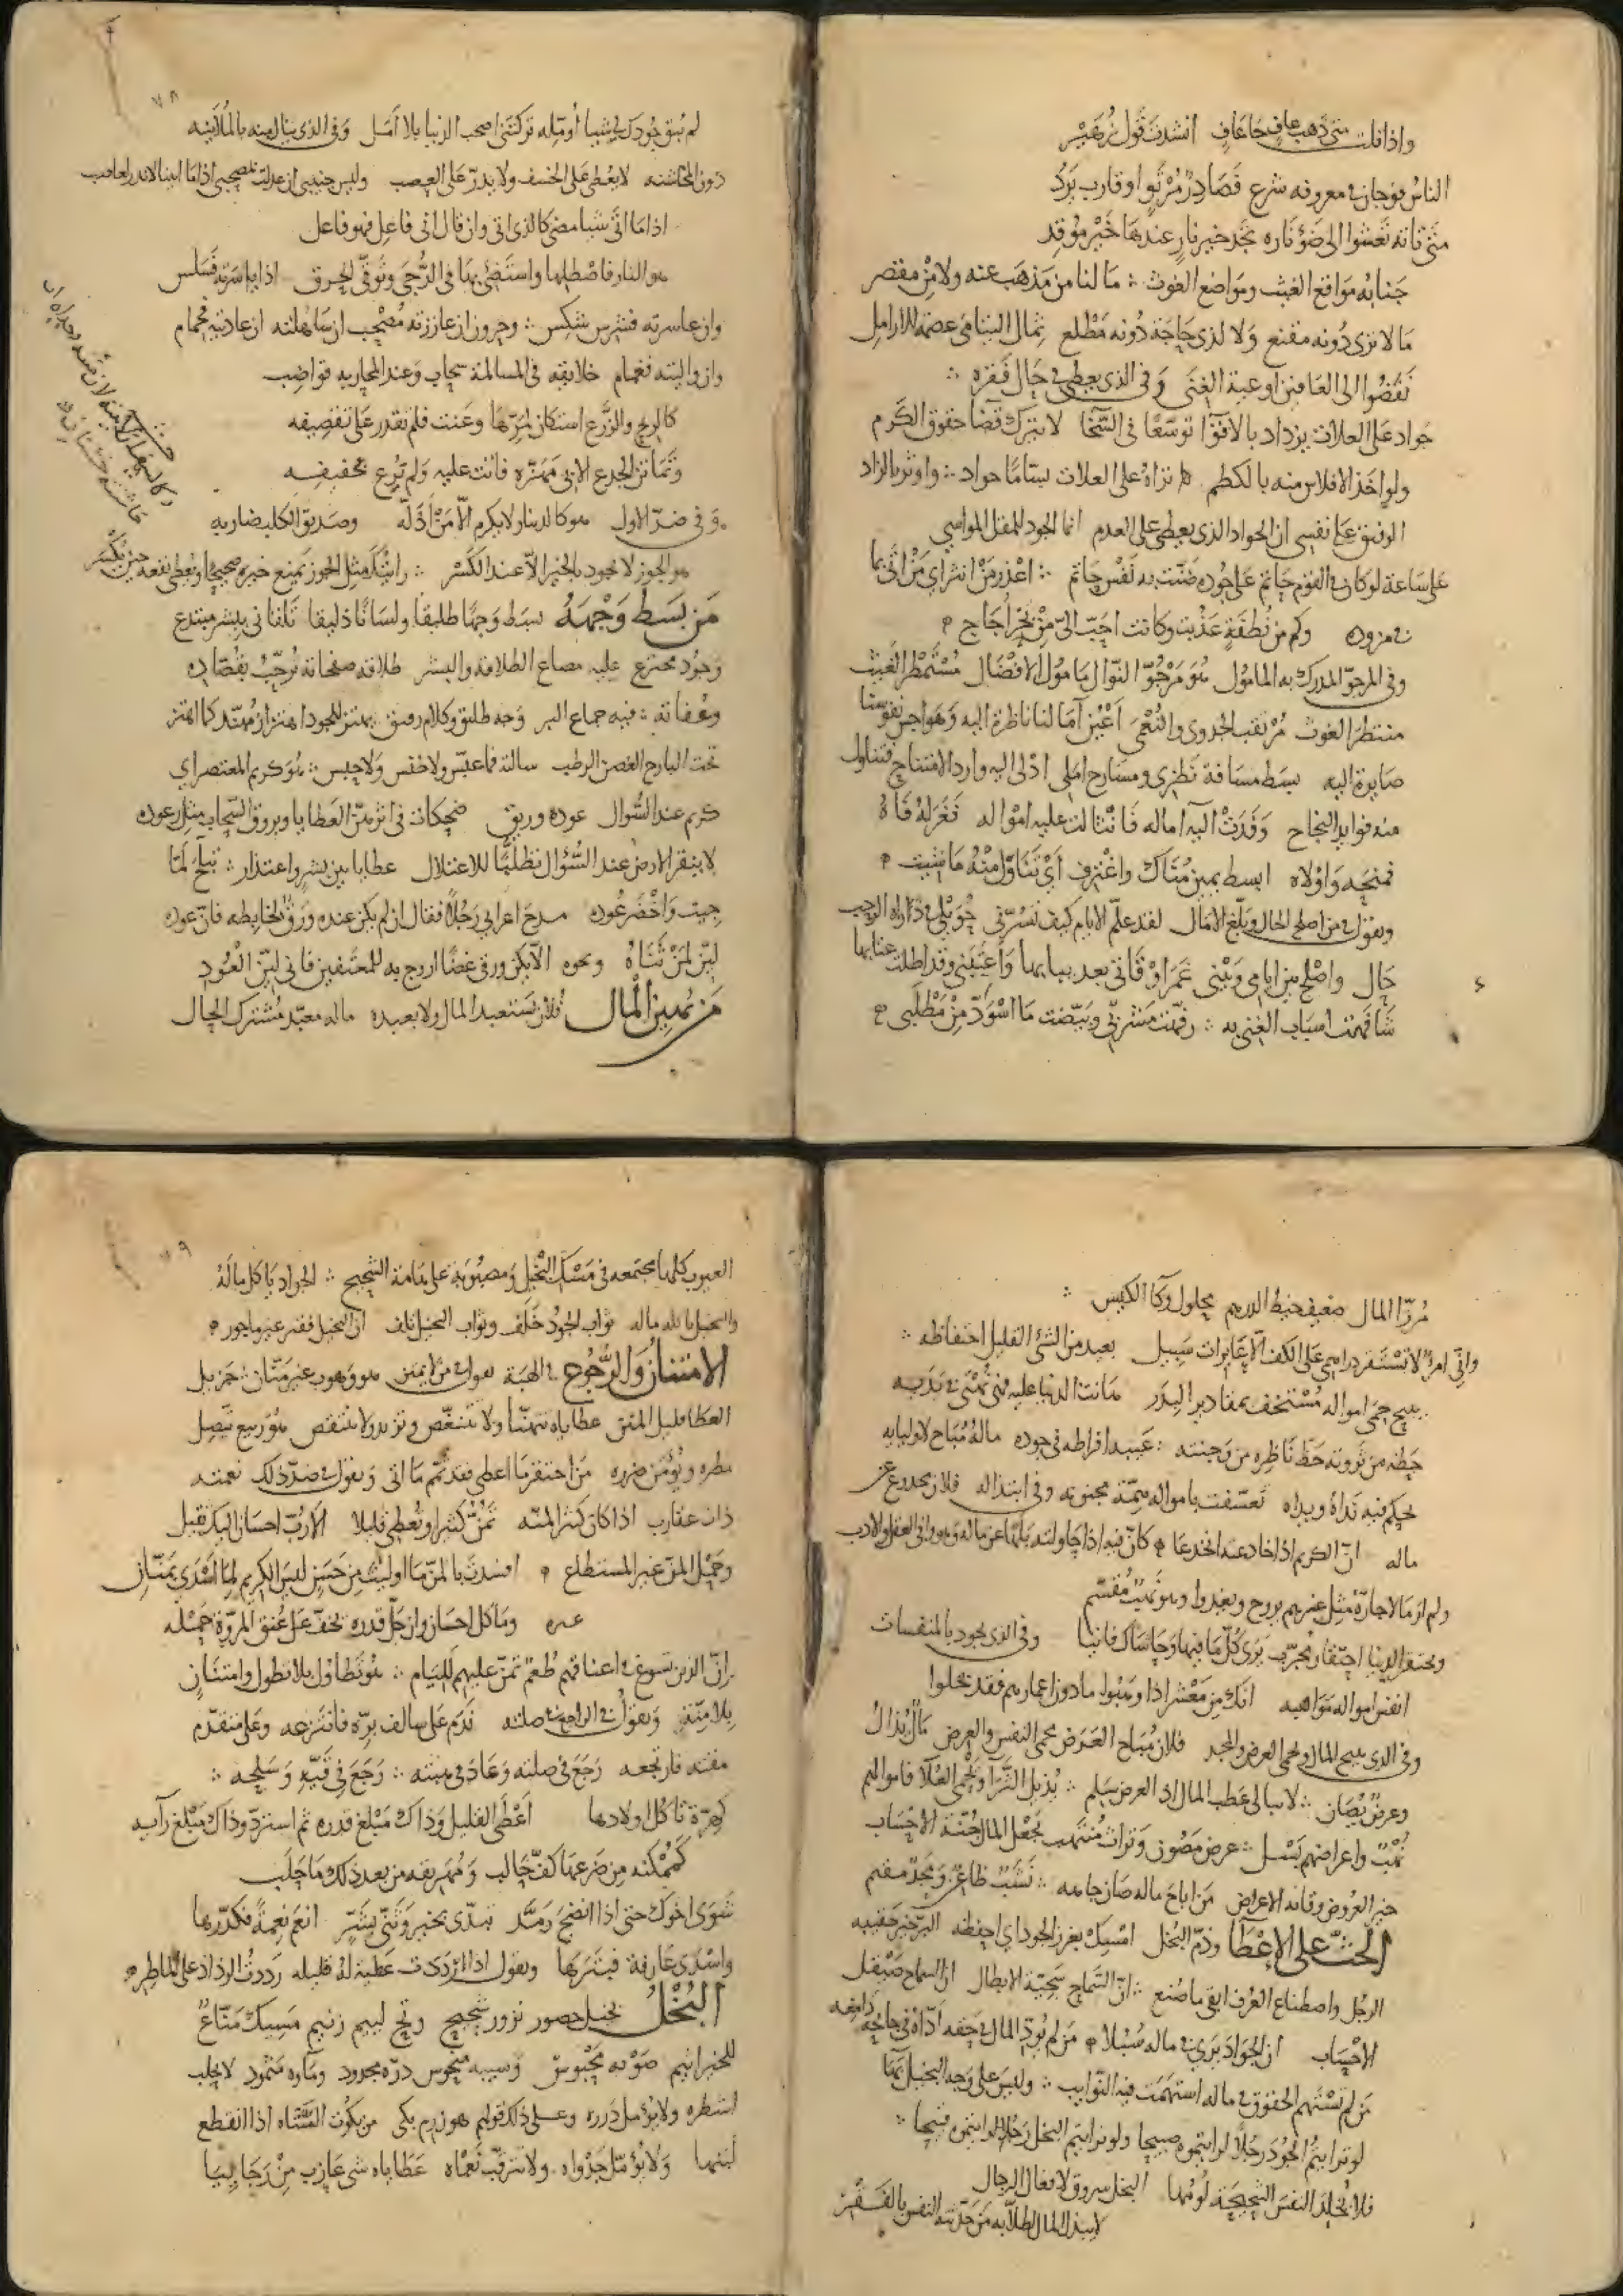 واذا قلت متى ذهب عاف جا عاف انشدت قول زهير
الناس فوجان في معروفه شرع فصادر مرتو او قارب يرد
متى تاته تعشوا الى ضوء ناره تجد خير نار عندها خير موقد
جنابه مواقع الغيث ومواضع الغوث ما لنا من مذهب عنه ولا من مقتصر
ما لا نرى دونه مقنع ولا لذي حاجة دونه مطلع ثمال اليتامى عصمة للارامل
نفضوا الى العافين اوعية الغنى وفي الذي يعطي في حال فقره
جواد على العلات يزداد بالاقوا توسعا في السخا لا يترك قضا حقوق الكرم
ولو اخذ الافلاس منه بالكظم تراه على العلات بساما جواد واوثر بالزاد
الرفيق على نفسي ان الجواد الذي يعطي على العدم انما الجود للمقل المواسي
على ساعة لو كان في القوم حاتم على جوده ضنت به نفس حاتم اعذر من اثراي من اتى بما
في مزوده وكم من نطفة عذبت وكانت احب الي من بحر اجاج
وفي المرجو المدرك به المامول هو مرجو النوال مامول الافضال مستمطر الغيث
منتظر الغوث مرتقب الجدوى والنعمى اعين آمالنا ناظرة اليه وهواجس نفوسنا
صايرة اليه بسط مسافة نظري ومسارح املي ادلى اليه وارد الامتناح فتناول
منه فوايد النجاح وفدت اليه اماله فانثالت عليه امواله فغر له فاه
فمنحه واولاه ابسط يمين متاك واغترف اي تناول منه ما شيت
ونقول في من اصلح الحال وبلغ الامال لقد علم الايام كيف تسرني
حال واصلح بين ايامي وبيني غمر اوقاتي بعد بيابها واعتبني وقد اطلت عتابها
شافهت اسباب الغنى به رفهت مشربي وبيضت ما اسود من مطلبي
لم يبق جودك لي شيا اومله تركتني اصحب الدنيا بلا امل وفي الذي ينال منه بالملاينه
دون المخاشنه لا يعطي على الخسف ولا يدر على العصب
اذا ما اتى شيا مضى كالذي اتى وان قال اني فاعل فهو فاعل
هو النار فاصطلها واستضئ بها في الدجى وتوق الحرق اذا ياسرته فسلس
وان عاسرته فشرس شكس وحرون ان عاززته مصحب ان ساهلته ان عاديته فحمام
وان واليته فغمام خلايقه في المسالمة سحاب وعند المحاربه قواضب
كالريح والزرع استكان لمرها وعنت فلم تقدر على تقصيفه
وفي ضد الاول هو كالدينار لا يكرم الا من اذله وصديق الكلب ضاربه
هو الجوز لا يجود بالخير الا عند الكسر رايتك مثل الجوز يمنع خيره صحيحا ويعطي نفعه حين يكسر
من بسط وجهه بسط وجها طليقا ولسانا ذليقا تلقاني ببشر مبتدع
وجود مخترع عليه مصاع الطلاقه والبشر طلاقه صفحاته ترحب بقصاده
وعفاته فيه جماع البر وجه طليق وكلام رفيق يهتز للجود اهتزاز مهند كما اهتز
تحت البارح الغصن الرطب سالته فما عبس ولا خنس ولا حبس هو كريم المعتصر اي
كريم عند السوال عوده وريق ضحكات في اثرهن العطايا وبروق السحاب مثل رعوده
لا ينقر الارض عند السوال تطلبا للاعتلال عطايا بين بشر واعتذار تبلج لما
جيت واخضر عوده مدح اعرابي رجلا فقال ان لم يكن عنده ورق لخابطه فان عوده
لين لمن ثناه ونحوه الا يكن ورقي غضا اروح به للمعتفين فاني لين العود
من يهين المال فلان يستعبد المال ولا يعبده ماله معبد مشترك الحال
مرزا المال ضعيف خيط الدرهم محلول وكا الكيس
واني امرؤ لا تستقر دراهمي على الكف الا عابرات سبيل بعيد من الشي القليل احتفاظه
يبيح حمى امواله مستخف بمقادير البدر هانت الدنيا عليه فهي تمتهن في يديه
حظه من ثروته حظ ناظره من وجنته عيبه افراطه في جوده ماله مباح لاوليايه
يحكم فيه نداه ويداه تعسفت باموالهم همة مجنونه وفي ابتذاله فلان مخدوع عن
ماله ان الكريم اذا خادعته انخدعا كان فيه اذا حاولته بلها عن ماله وهو وافي العقل والادب
ولم ار مالا جاره مثل عزهم يروح ويغدوا وهو نهب مقسم
ويحتقر الدنيا احتقار مجرب يرى كل ما فيها وحاشاك فانيا وفي الذي يجود بالمنفسات
انفس امواله مواهبه انك من معشر اذا وهبوا ما دون اعمارهم فقد بخلوا
وفي الذي يبيح المال ويحمي العرض والمجد فلان مباح العرض محمى النفس والعرض مال يذال
وعرض يصان لا يبالي عطب المال اذا العرض سلم يذيل الثراء ويحمي العلا فاموالهم
نهب واعراضهم بسل عرض مصون وتراث منتهب يجعل المال جنة الاحساب
خير العروض وقاية الاعراض من اباح ماله صان جاهه نشب ظاعن ومجد مقيم
الحث على الاعطا وذم البخل امسك بغرز الجود اي احفظه البر خير حقيبه
الرحل واصطناع العرف ابقى ما صنع ان السماح سجية الابطال ان السماح صيقل
الاحساب ان الجواد يرى في ماله سبلا من لم يود المال في حقه اداه في جايحه دامغه
من لم تستهم الحقوق في ماله استهمت فيه النوايب وليس على وجه البخيل بها
لو رايتم الجود رجلا لرايتموه صبيحا ولو رايتم البخل رجلا لرايتموه قبيحا
فلا تخلد النفس الشحيحة لومها البخل سروق لافعال الرجال
لا يبذل المال لطلابه من حدثته النفس بالفقر
العيوب كلها مجتمعه في مسك البخيل ومصبوبة على هامة الشحيح الجواد ياكل ماله
والبخيل ياكله ماله ثواب الجود خلف وثواب البخل تلف ان البخيل فقير غير ماجور
الامتنان والرجوع في الهبة نقول في من لا يمتن هو وهوب غير منان جزيل
العطا قليل المن عطاياه تتهنا ولا تتنغص وتزيد ولا تنتقص هو ربيع يتصل
مطره ويومن ضرره من احتقر ما اعطى فقد تمم ما اتى ونقول في ضد ذلك نعمته
ذات عقارب اذا كان كثر المنه تمن كثيرا وتعطي قليلا الا رب احسان اليك ثقيل
وحمل المن غير المستطاع افسدت بالمن ما اوليت من حسن ليس الكريم لما اسدى بمنان
غيره وما كل احسان وان جل قدره يخف على عنق المروة حمله
ان الذين تسوغ في اعناقهم طعم تمن عليهم للئام هو تطاول بلا تطول وامتنان
بلا منة ونقول في الراجع في صلته ندم على سالف بره فانتزعه وعلى متقدم
هبته فارتجعه رجع في صلته وعاد في هبته رجع في قيئه وسلحه
كهرة تاكل اولادها اعطى القليل وذاك مبلغ قدره ثم استرد وذاك مبلغ رايه
كممكنة من ضرعها كف حالب ومهريقه من بعد ذلك ما حلب
شوى اخوك حتى اذا انضج رمد تبدى بخير وتنى بشر انعم نعمة فكدرها
واسدى عارفة فبترها ونقول اذا ازددت عطية له قليله رددت الرذاذ على الماطر
البخل بخيل حصور نزور شحيح وتح لييم زنيم مسيك مناع
للخير اثيم صوبه محبوس وسيبه منحوس دره مجدود وماوه مثمود لا يحلب
اشطره ولا يومل درره وعلى ذلك قولهم هو زمر بكي من بكوت الشاه اذا انقطع
لبنها ولا يومل جدواه ولا تترقب نعماه عطاياه شي عازب من رجا لبيبا